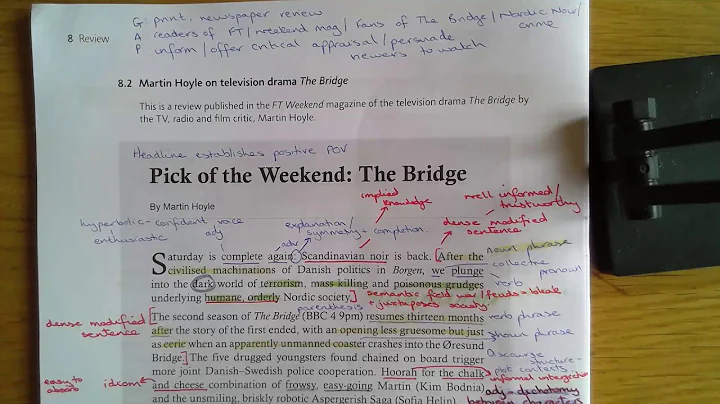 G: print, newspaper review
A readers of FT/weekend mag/Fans of The Bridge/Nordic Noir/
crime
P inform/offer critical appraisal/persuade
viewers to watch
8 Review
8.2 Martin Hoyle on television drama The Bridge
This is a review published in the FT Weekend magazine of the television drama The Bridge by
the TV, radio and film critic, Martin Hoyle.
Headline establishes positive POV
Pick of the Weekend: The Bridge
By Martin Hoyle
implied
knowledge
well informed/
trustworthy
hyperbolic - confident voice
enthusiastic
adj
adv
explanation/
symmetry + completion.
dense modified
sentence
Saturday is complete again: Scandinavian noir is back. [After the
noun phrase
civilised machinations of Danish politics in Borgen, we plunge
collective
pronoun
into the dark world of terrorism, mass killing and poisonous grudges
verb
underlying humane, orderly Nordic society.]
semantic field war/feuds = bleak
+ juxtaposes society
parenthesis
dense modified
sentence
[The second season of The Bridge (BBC4 9pm) resumes thirteen months
verb phrase
after the story of the first ended, with an opening less gruesome but just
as eerie when an apparently unmanned coaster crashes into the Øresund
noun phrase
Bridge.] The five drugged youngsters found chained on board trigger
Discourse
structure -
plot contents
more joint Danish–Swedish police cooperation. Hoorah for the chalk
informal interjection
easy to
absorb
idiom
and cheese combination of frowsy, easy-going Martin (Kim Bodnia)
adj - dichotomy
between characters
and the unsmiling, briskly robotic Aspergerish Saga (Sofia Helin).